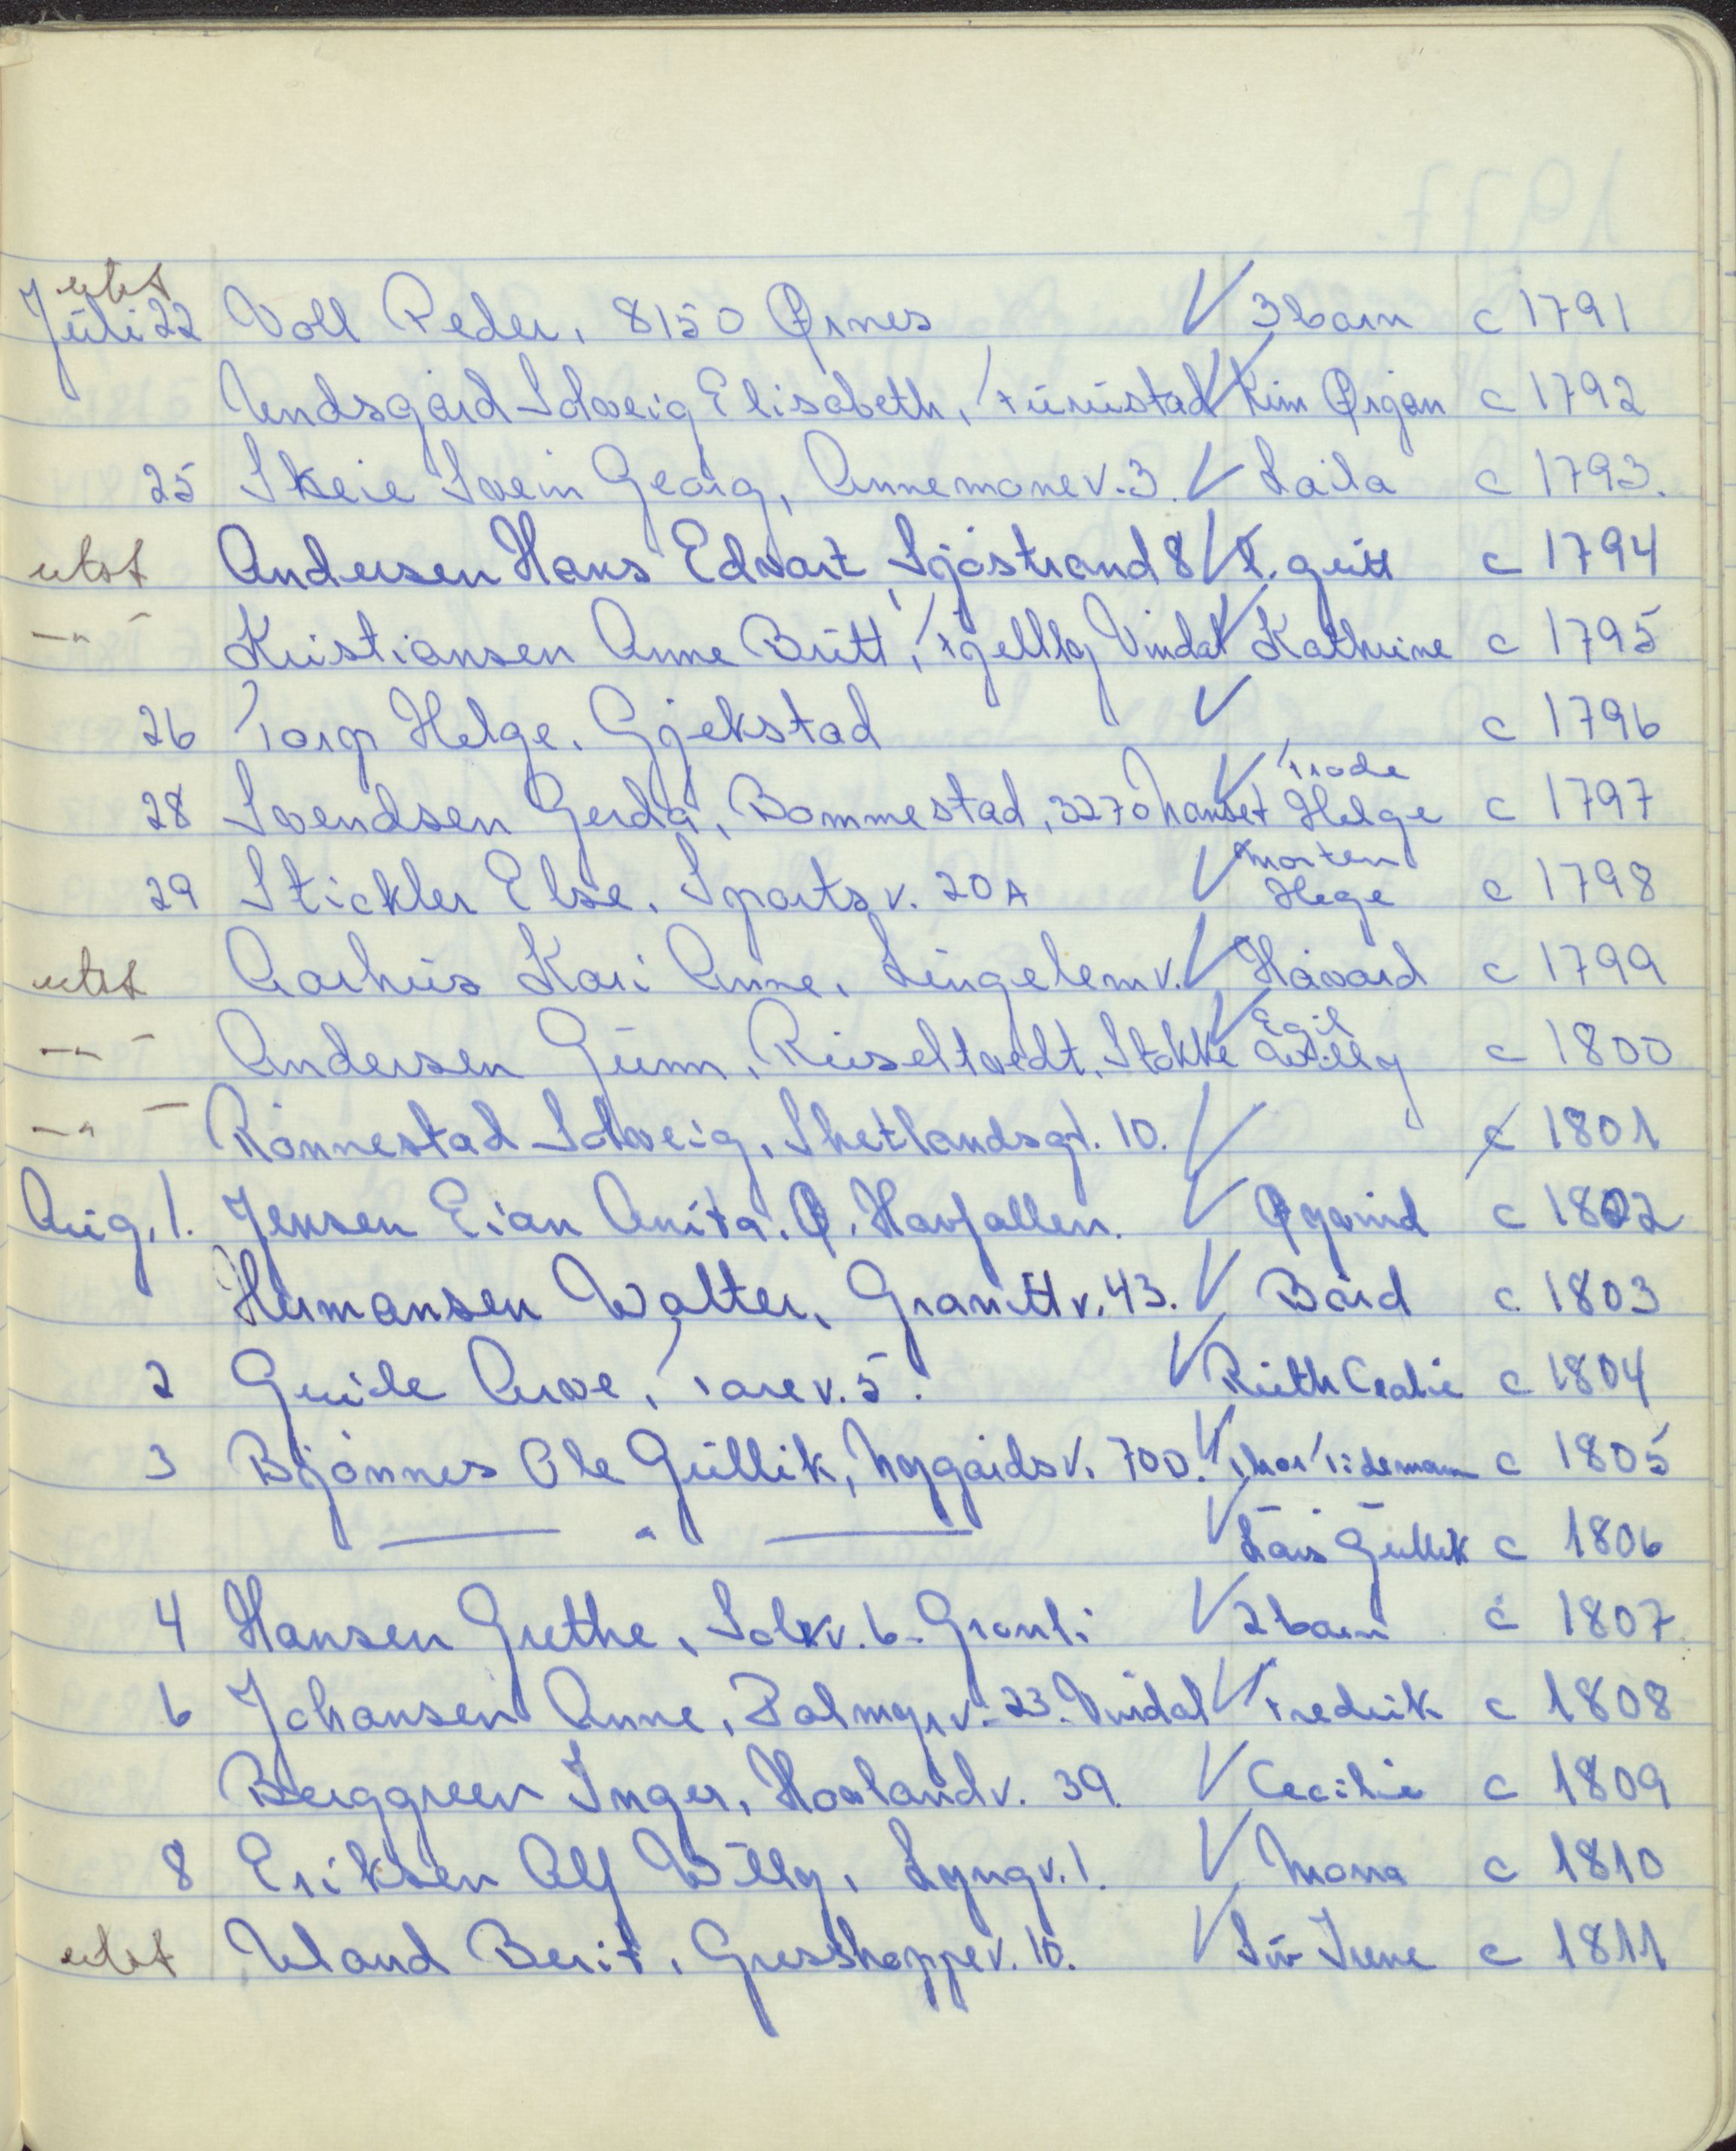 utst
Juli 22 Voll Peder, 8150 Ørnes V 3 barn c 1791
Undsgård Solveig Elisabeth, Furustad V Kim Ørjan c 1792
25 Skeie Svein Georg, Annemonev. 3. V Laila c 1793.
utst Andersen Hans Edvart, Sjøstrand 8 V c 1794
—"— Kristiansen Anne Britt, Fjellby Vindal V Kathrine c 1795
26 Torp Helge, Gjekstad V c 1796
28 Svendsen Gerda, Bommestad, 3270 V Frode Helge c 1797
29 Stickler Else, Sportsv. 20A V Morten Hege c 1798
utst Aarhus Kari Anne, Lingelemv. V Håvard c 1799
—"— Andersen Gunn, Ruseltvedt, Stokke V Egil Willy c 1800
—"— Rönnestad Solveig, Shetlandsgt. 10. V c 1801
Aug, 1. Jensen Eian Anita, Ø. Havfallen. V Øyvind c 1802
Hermansen Walter, Granittv. 43. V Bård c 1803
2 Guide Arve, Tarev. 5. V Ruth c 1804
3 Bjønnes Ole Gullik, Nygårdsv. 70D. V Tidemann c 1805
— " — V Lars Gullik c 1806
4 Hansen Grethe, Solkv. 6 - Granli V 2 barn c 1807
6 Johansen Anne, Palmyrv. 23. Vindal V Fredrik c 1808
Berggreen Inger, Hovlandv. 39. V Cecilie c 1809
8 Eriksen Alf Willy, Lyngv. 1. V Mona c 1810
utst Uland Berit, Gresshoppev. 10. V Siv Irene c 1811